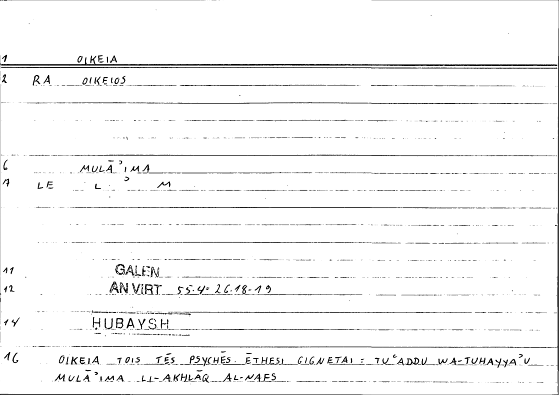 1 OIKEIA
2 RA OIKEIOS
6 MULĀʾIMA
7 LE L ʾ M
11 GALEN
12 AN VIRT 55.4 = 26.18-19
14 HUBAYSH
16 OIKEIA TOIS TĒS PSYCHĒS ĒTHESI GIGNETAI = TUʿADDU WA-TUHAYYAʾU
MULĀʾIMA LI-AKHLĀQ AL-NAFS